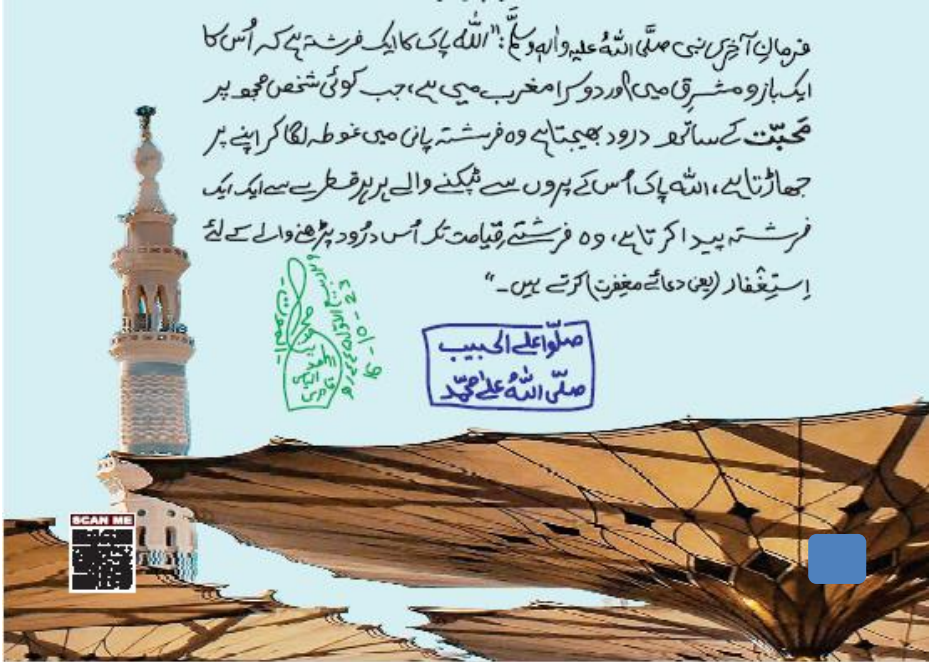 فرمانِ آخِری نبی صلَّی اللہُ علیہ واٰلہٖ وسلَّم: "اللہ پاک کا ایک فرشتہ ہے کہ اُس کا
ایک بازو مشرق میں اور دوسرا مغرب میں ہے، جب کوئی شخص مجھ پر
مَحبّت کے ساتھ درود بھیجتا ہے وہ فرشتہ پانی میں غوطہ لگا کر اپنے پر
جھاڑتا ہے، اللہ پاک اُس کے پروں سے ٹپکنے والے ہر ہر قطرے سے ایک ایک
فرشتہ پیدا کرتا ہے، وہ فرشتے قیامت تک اُس دُرُود پڑھنے والے کے لئے
اِستِغْفار (یعنی دعائے مغفِرت) کرتے ہیں۔"
صلُّوا علی الحبیب
صلَّی اللہُ علٰی محمَّد
SCAN ME